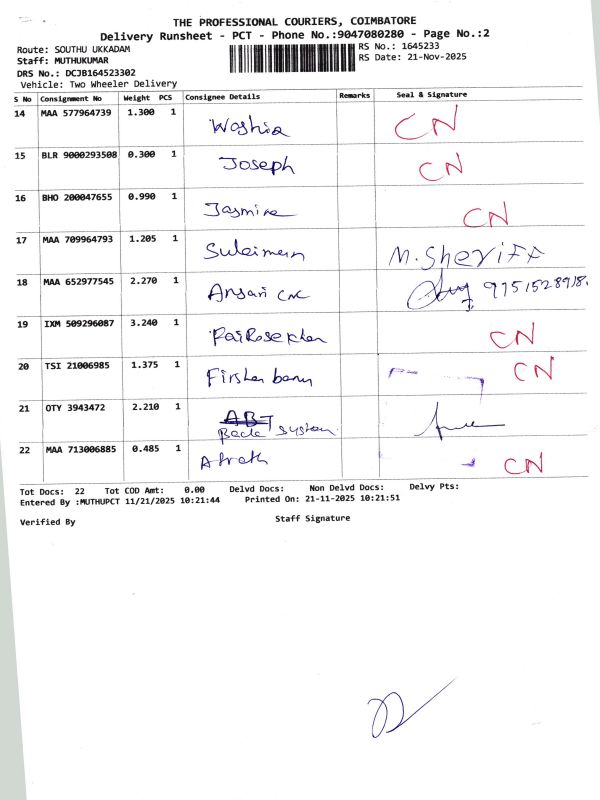 THE PROFESSIONAL COURIERS, COIMBATORE
Delivery Runsheet - PCT - Phone No.:9047080280 - Page No.:2
Route: SOUTHU UKKADAM
RS No.: 1645233
Staff: MUTHUKUMAR
RS Date: 21-Nov-2025
DRS No.: DCJB164523302
Vehicle: Two Wheeler Delivery
S No Consignment No Weight PCS Consignee Details Remarks Seal & Signature
14 MAA 577964739 1.300 1 Woshia CN
15 BLR 9000293508 0.300 1 Joseph CN
16 BHO 200047655 0.990 1 Jasmine CN
17 MAA 709964793 1.205 1 Suleiman M. Sheriff
18 MAA 652977545 2.270 1 Ansari 9751528918.
19 IXM 509296087 3.240 1 CN
20 TSI 21006985 1.375 1 CN
21 OTY 3943472 2.210 1 System
22 MAA 713006885 0.485 1 CN
Tot Docs: 22 Tot COD Amt: 0.00 Delvd Docs: Non Delvd Docs: Delvy Pts:
Entered By :MUTHUPCT 11/21/2025 10:21:44 Printed On: 21-11-2025 10:21:51
Verified By Staff Signature